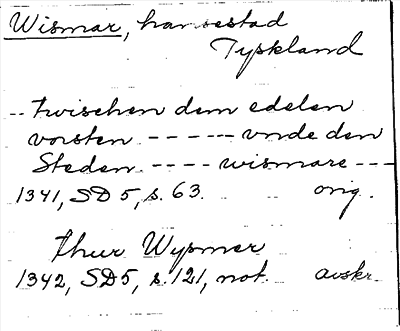 Wismar, hansestad
Tyskland
-- twischen dem edelen
vorsten - - - - - - vnde den
Steden - - - - wismare - - -
1341, SD 5, s. 63. orig.
thur Wysmer
1342, SD 5, s. 121, not. avskr.